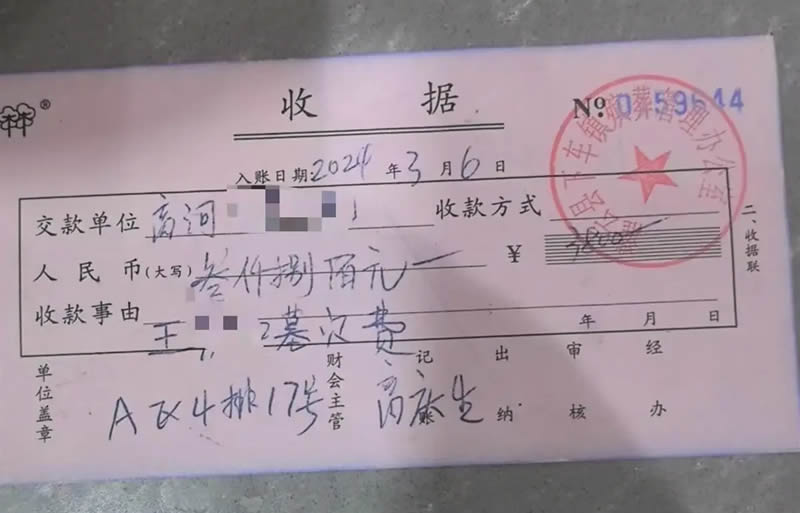 收据
№ 0159544
入账日期:2024年3月6日
交款单位 高河 收款方式
人民币(大写) 叁仟捌佰元 ¥ 3800
收款事由 王 墓穴费 年 月 日
单位盖章 财会主管 记 出纳 审核 经办
A区4排17号
二、收据联
下车镇殡葬管理办公室